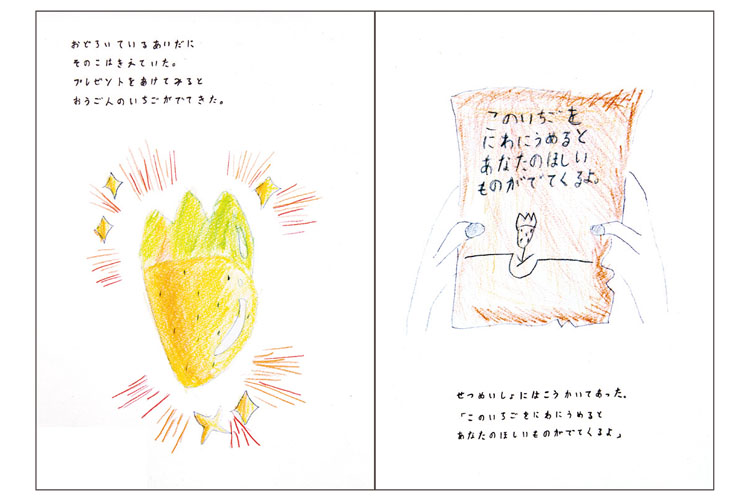 おどろいているあいだに
そのこはきえていた。
プレゼントをあけてみると
おうごんのいちごがでてきた。
このいちごを
にわにうめると
あなたのほしい
ものがでてくるよ。
せつめいしょにはこうかいてあった。
「このいちごをにわにうめると
あなたのほしいものがでてくるよ」